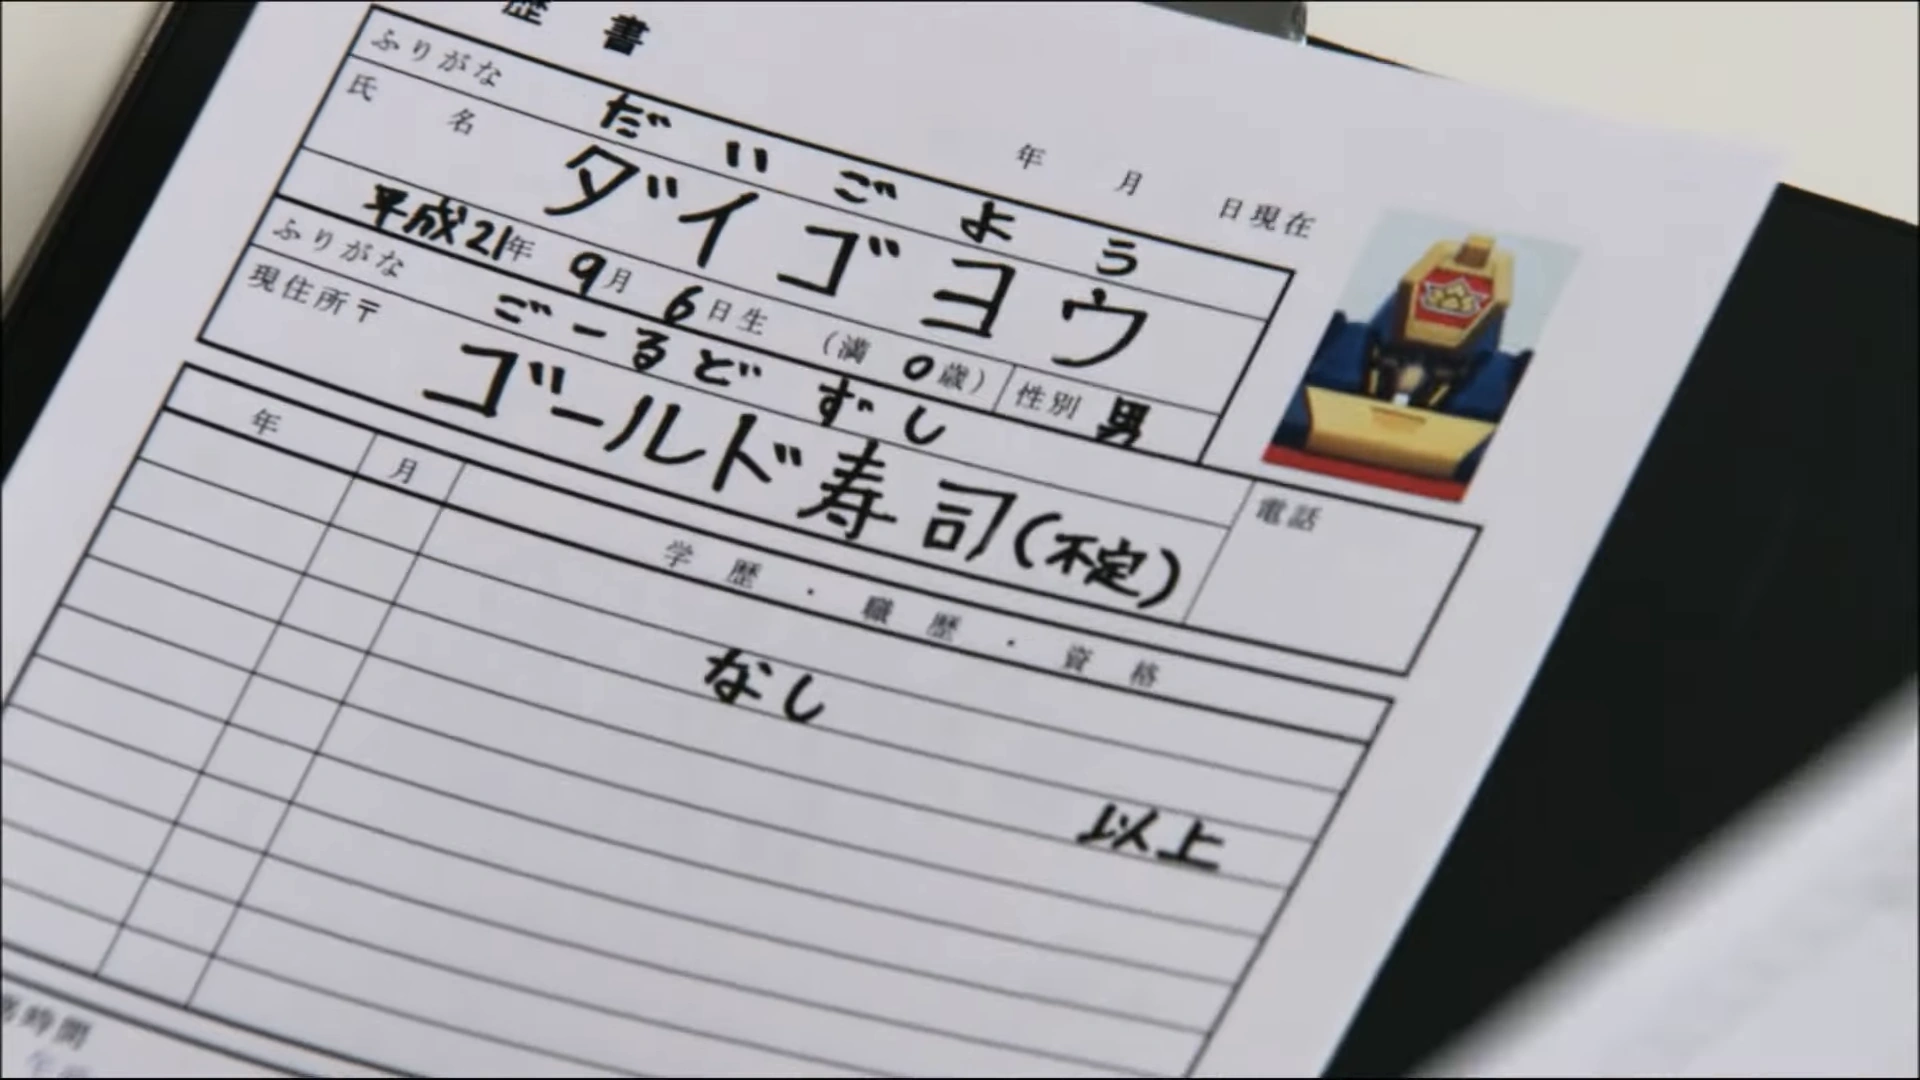 歴書
年 月 日現在
ふりがな だいごよう
氏名 ダイゴヨウ
平成21年 9月 6日生 (満 0歳) 性別 男
ふりがな ごーるどずし
現住所〒 ゴールド寿司(不定)
電話
年 月 学歴・職歴・資格
なし
以上
時間